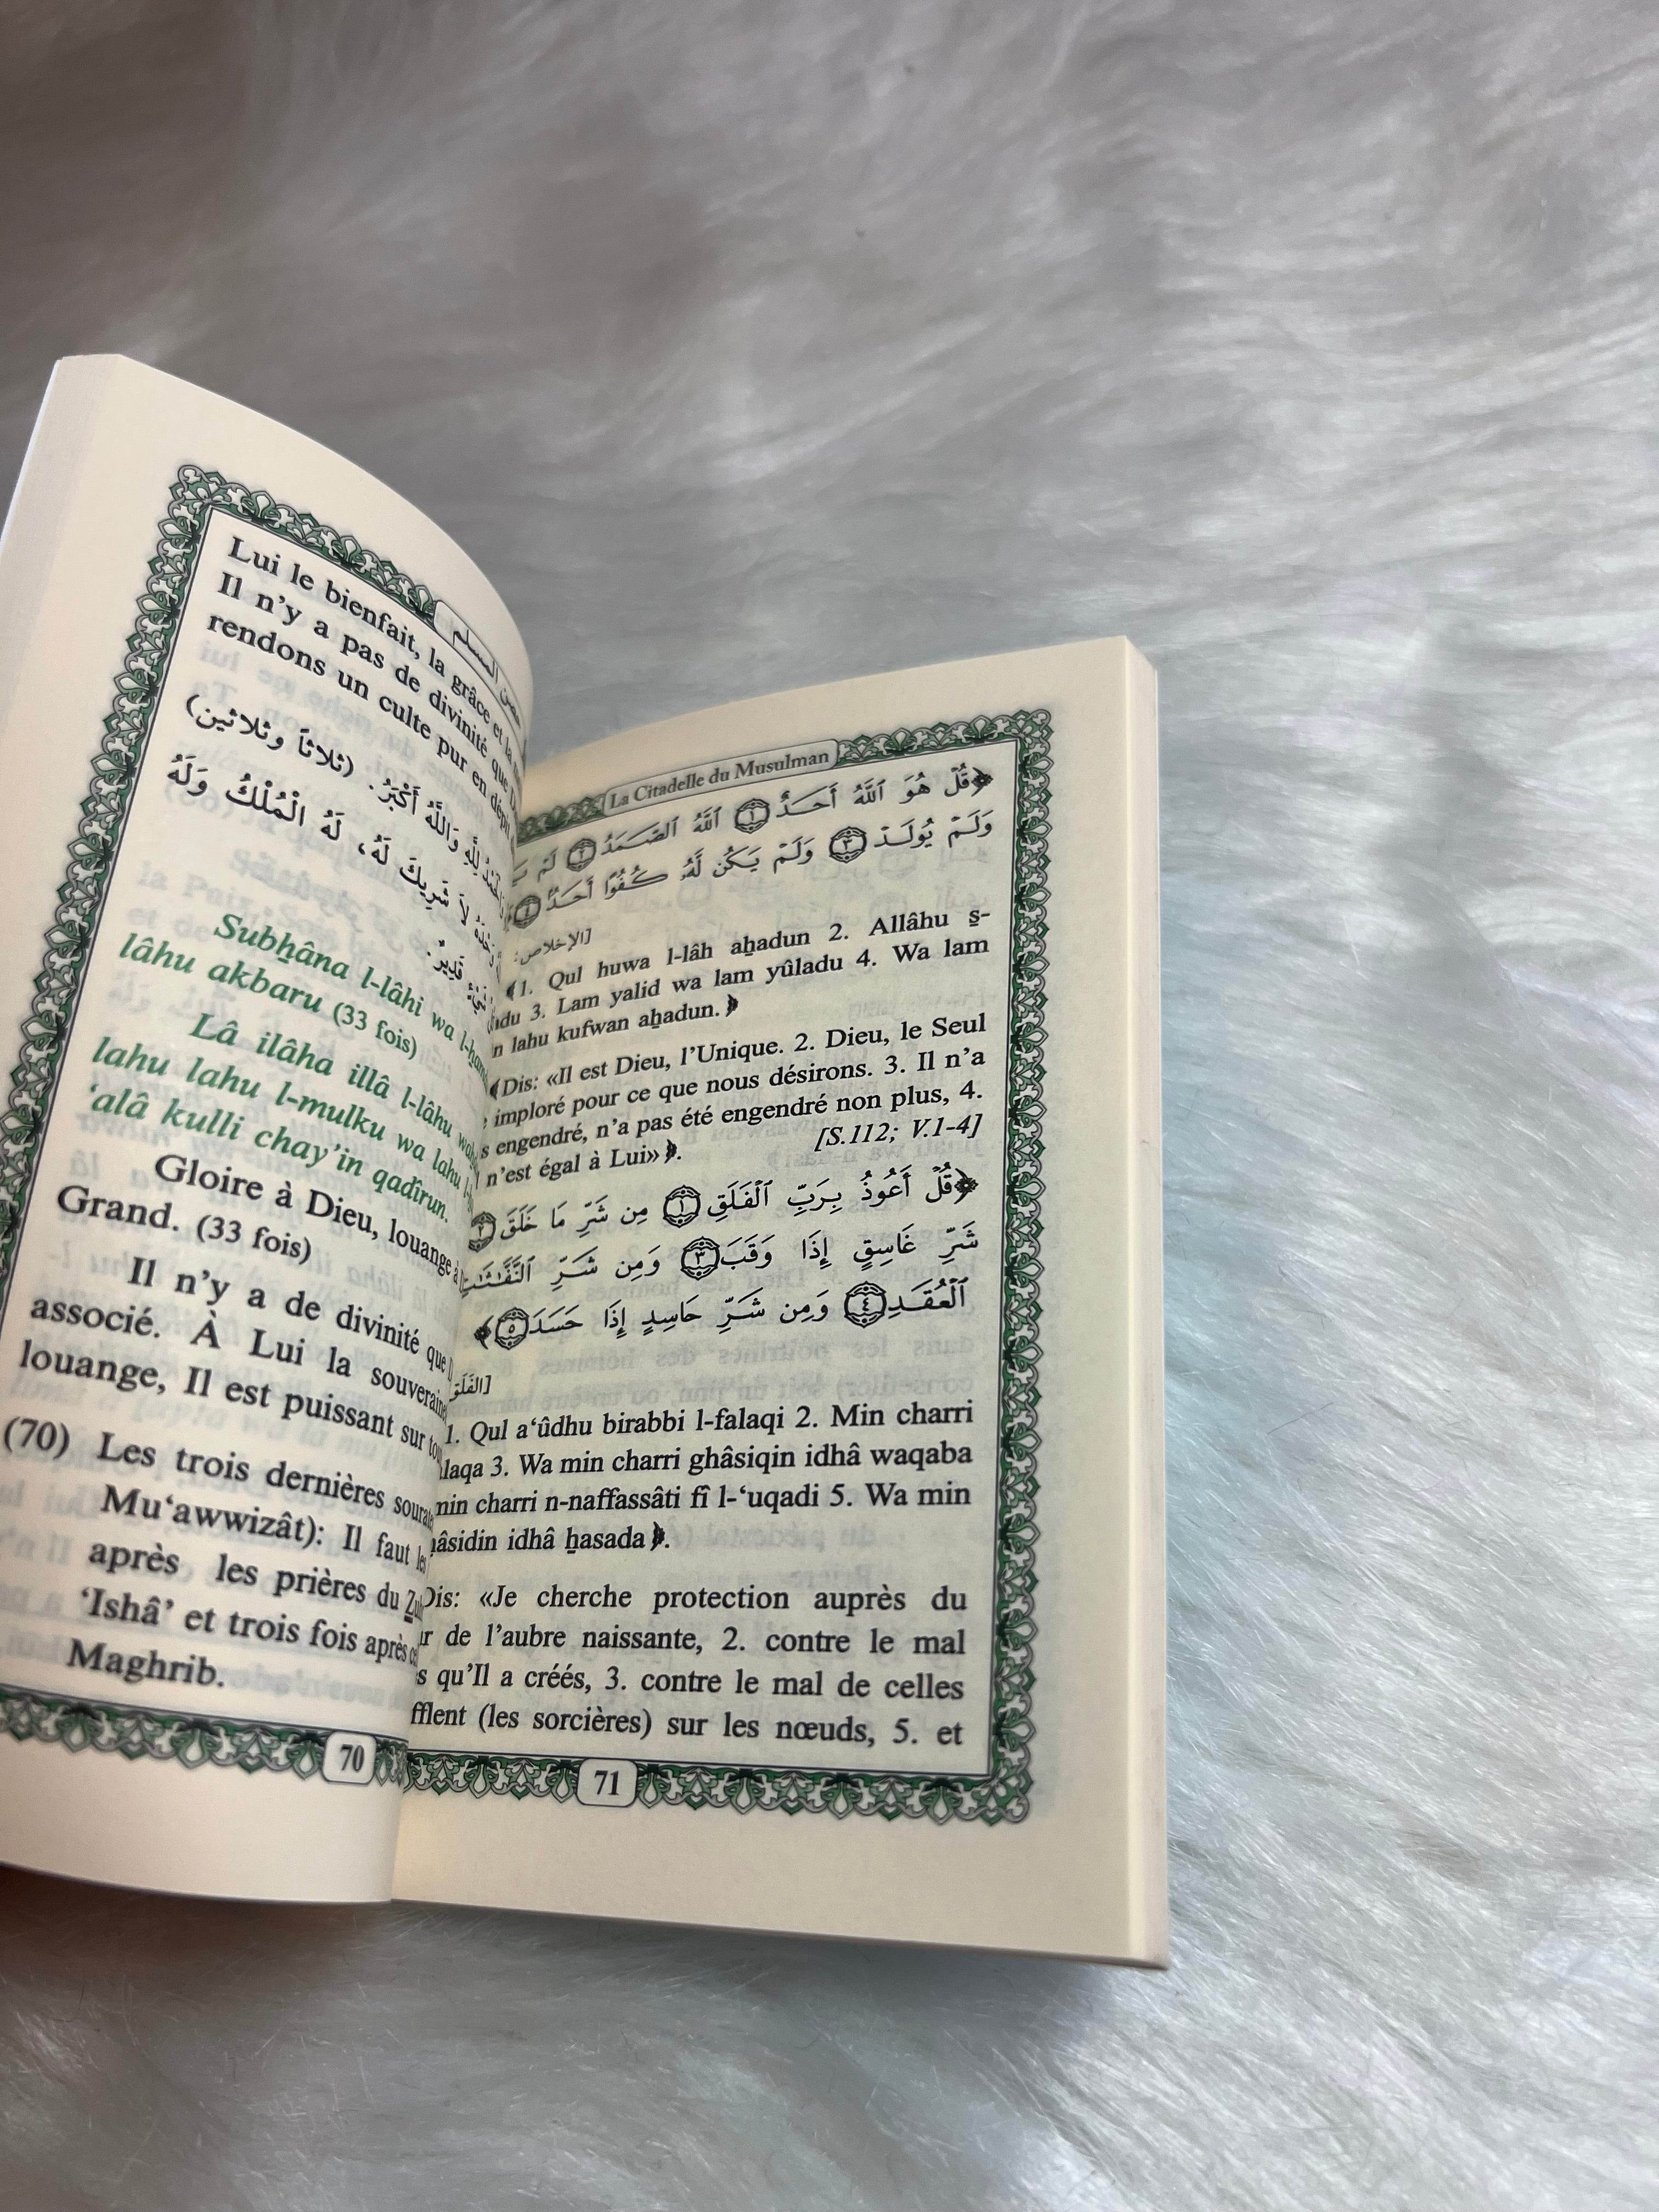 حصن المسلم
Lui le bienfait, la grâce et la
Il n'y a pas de divinité que
rendons un culte pur en dépit
وَالْحَمْدُ لِلَّهِ وَاللَّهُ أَكْبَرُ. (ثلاثاً وثلاثين)
وَحْدَهُ لاَ شَرِيكَ لَهُ، لَهُ الْمُلْكُ وَلَهُ
قَدِيرٌ.
Subẖâna l-lâhi wa
lâhu akbaru (33 fois)
Lâ ilâha illâ l-lâhu
lahu lahu l-mulku wa lahu
'alâ kulli chay'in qadîrun.
Gloire à Dieu, louange à
Grand. (33 fois)
Il n'y a de divinité que
associé. À Lui la
louange, Il est puissant sur
(70) Les trois dernières
Mu'awwizât): Il faut
après les prières du
'Ishâ' et trois fois après
Maghrib.
70
La Citadelle du Musulman
﴿قُلْ هُوَ ٱللَّهُ أَحَدٌ ١ ٱللَّهُ ٱلصَّمَدُ ٢ لَمْ
وَلَمْ يُولَدْ ٣ وَلَمْ يَكُن لَّهُ كُفُوًا أَحَدٌ ٤
[الإخلاص:
﴾1. Qul huwa l-lâh aẖadun 2. Allâhu s̱-
3. Lam yalid wa lam yûladu 4. Wa lam
lahu kufwan aẖadun.﴿
﴾Dis: «Il est Dieu, l'Unique. 2. Dieu, le Seul
imploré pour ce que nous désirons. 3. Il n'a
engendré, n'a pas été engendré non plus, 4.
n'est égal à Lui»﴿. [S.112; V.1-4]
﴿قُلْ أَعُوذُ بِرَبِّ ٱلْفَلَقِ ١ مِن شَرِّ مَا خَلَقَ ٢
شَرِّ غَاسِقٍ إِذَا وَقَبَ ٣ وَمِن شَرِّ ٱلنَّفَّٰثَٰتِ
ٱلْعُقَدِ ٤ وَمِن شَرِّ حَاسِدٍ إِذَا حَسَدَ ٥﴾
[الفَلَق
1. Qul a'ûdhu birabbi l-falaqi 2. Min charri
3. Wa min charri ghâsiqin idhâ waqaba
min charri n-naffassâti fî l-'uqadi 5. Wa min
idhâ ẖasada﴿.
Dis: «Je cherche protection auprès du
de l'aubre naissante, 2. contre le mal
qu'Il a créés, 3. contre le mal de celles
(les sorcières) sur les nœuds, 5. et
71